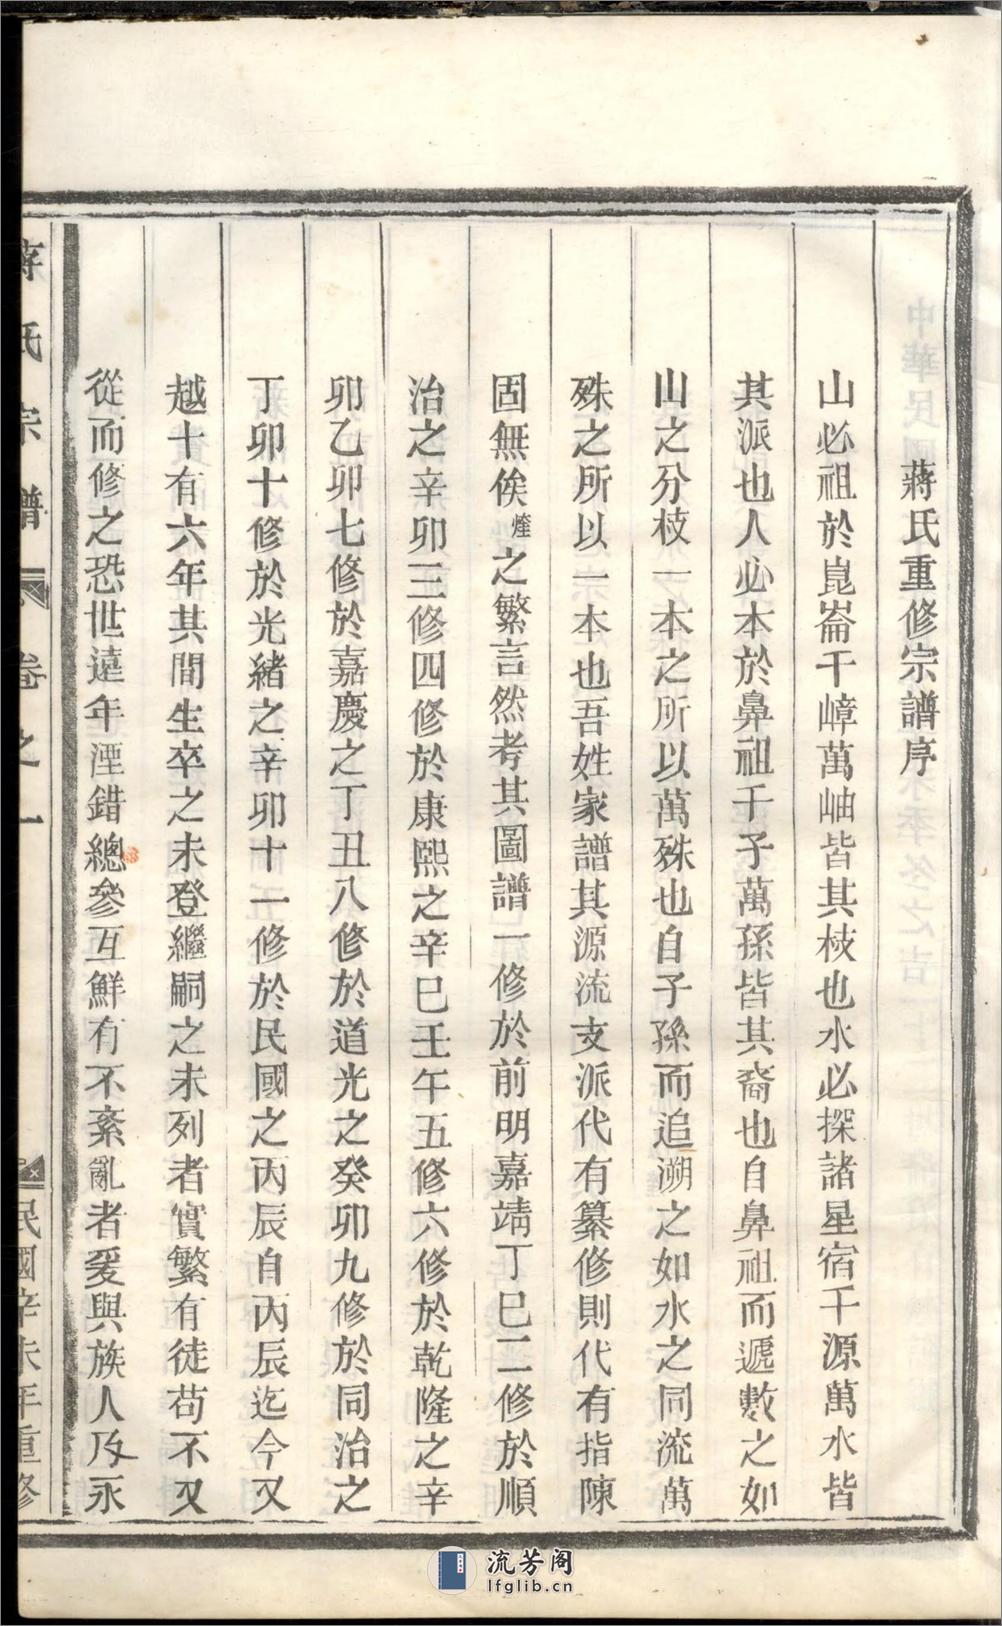 蔣氏重修宗譜序
山必祖於崑崙千嶂萬岫皆其枝也水必探諸星宿千源萬水皆
其派也人必本於鼻祖千子萬孫皆其裔也自鼻祖而遞數之如
山之分枝一本之所以萬殊也自子孫而追溯之如水之同流萬
殊之所以一本也吾姓家譜其源流支派代有纂修則代有指陳
固無俟煃之繁言然考其圖譜一修於前明嘉靖丁巳二修於順
治之辛卯三修四修於康熙之辛巳壬午五修六修於乾隆之辛
卯乙卯七修於嘉慶之丁丑八修於道光之癸卯九修於同治之
丁卯十修於光緒之辛卯十一修於民國之丙辰自丙辰迄今又
越十有六年其間生卒之未登繼嗣之未列者實繁有徒苟不又
從而修之恐世遠年湮錯總參互鮮有不紊亂者爰與族人乃永
蔣氏宗譜 卷之一 民國辛未年重修
流芳阁
lfglib.cn